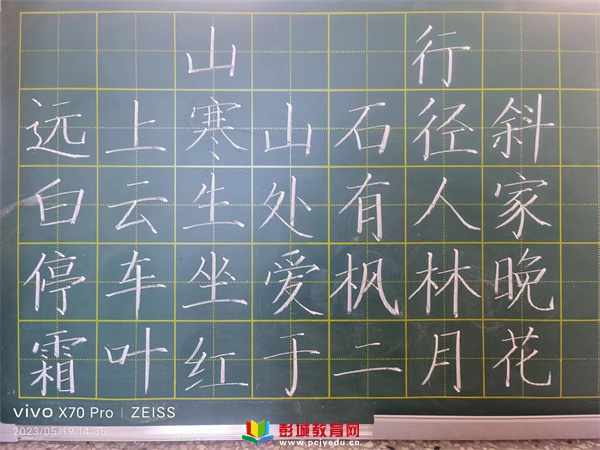 山行
远上寒山石径斜
白云生处有人家
停车坐爱枫林晚
霜叶红于二月花
vivo X70 Pro | ZEISS
2023/05/19 14:35
彭城教育网
www.pcjyedu.cn